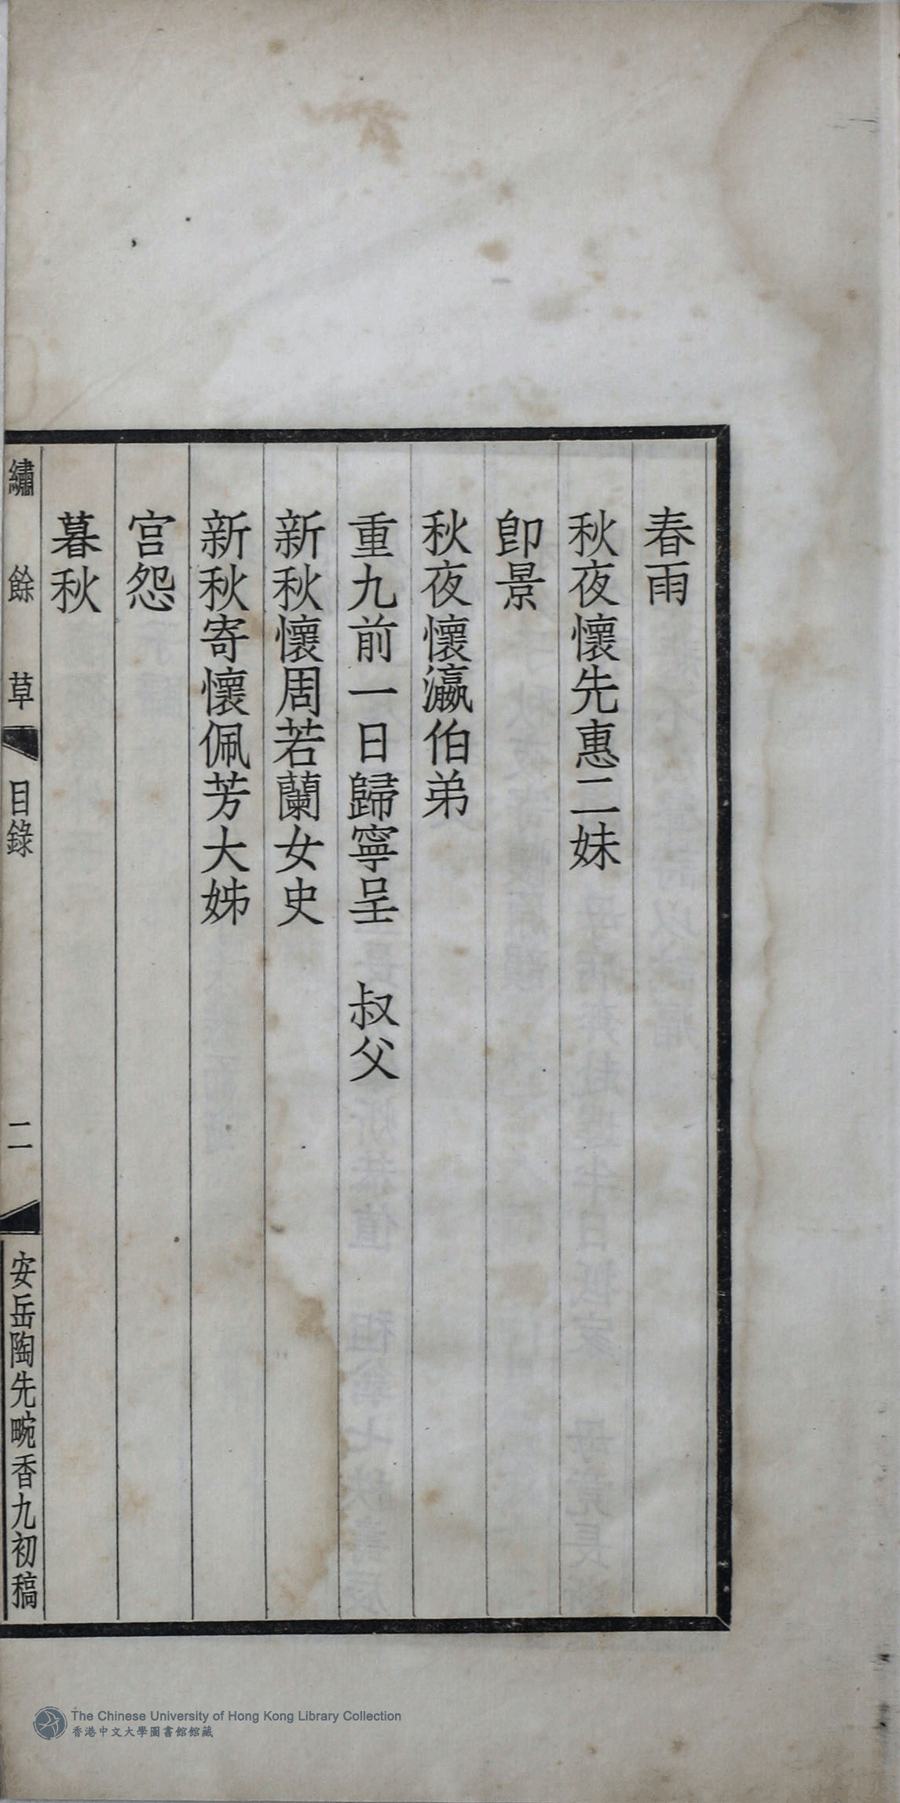 春雨
秋夜懷先惠二妹
卽景
秋夜懷瀛伯弟
重九前一日歸寧呈　叔父
新秋懷周若蘭女史
新秋寄懷佩芳大姊
宫怨
暮秋
繡餘草　目錄　二　安岳陶先畹香九初稿
The Chinese University of Hong Kong Library Collection
香港中文大學圖書館館藏